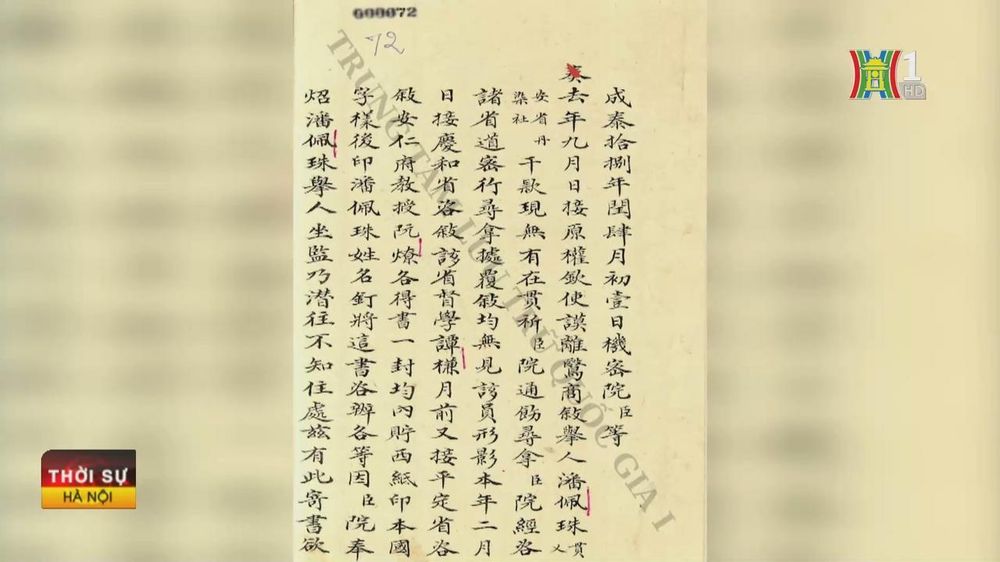 000072
72
成泰拾捌年閏肆月初壹日機密院臣等
奏
去年九月日接原權欽使謨離驚商敘舉人潘佩珠貫乂
安省丹染社干款現無有在貫祈臣院通飭尋拿臣院經咨
諸省道密行尋拿據覆敘均無見該員形影本年二月
日接慶和省咨敘該省督學譚槏月前又接平定省咨
敘安仁府教授阮燎各得書一封均內貯西紙印本國
字樣後印潘佩珠姓名釘將這書咨辦各等因臣院奉
炤潘佩珠舉人坐監乃潛往不知住處茲有此寄書欲
TRUNG TÂM LƯU TRỮ QUỐC GIA I
1
HD
THỜI SỰ
HÀ NỘI